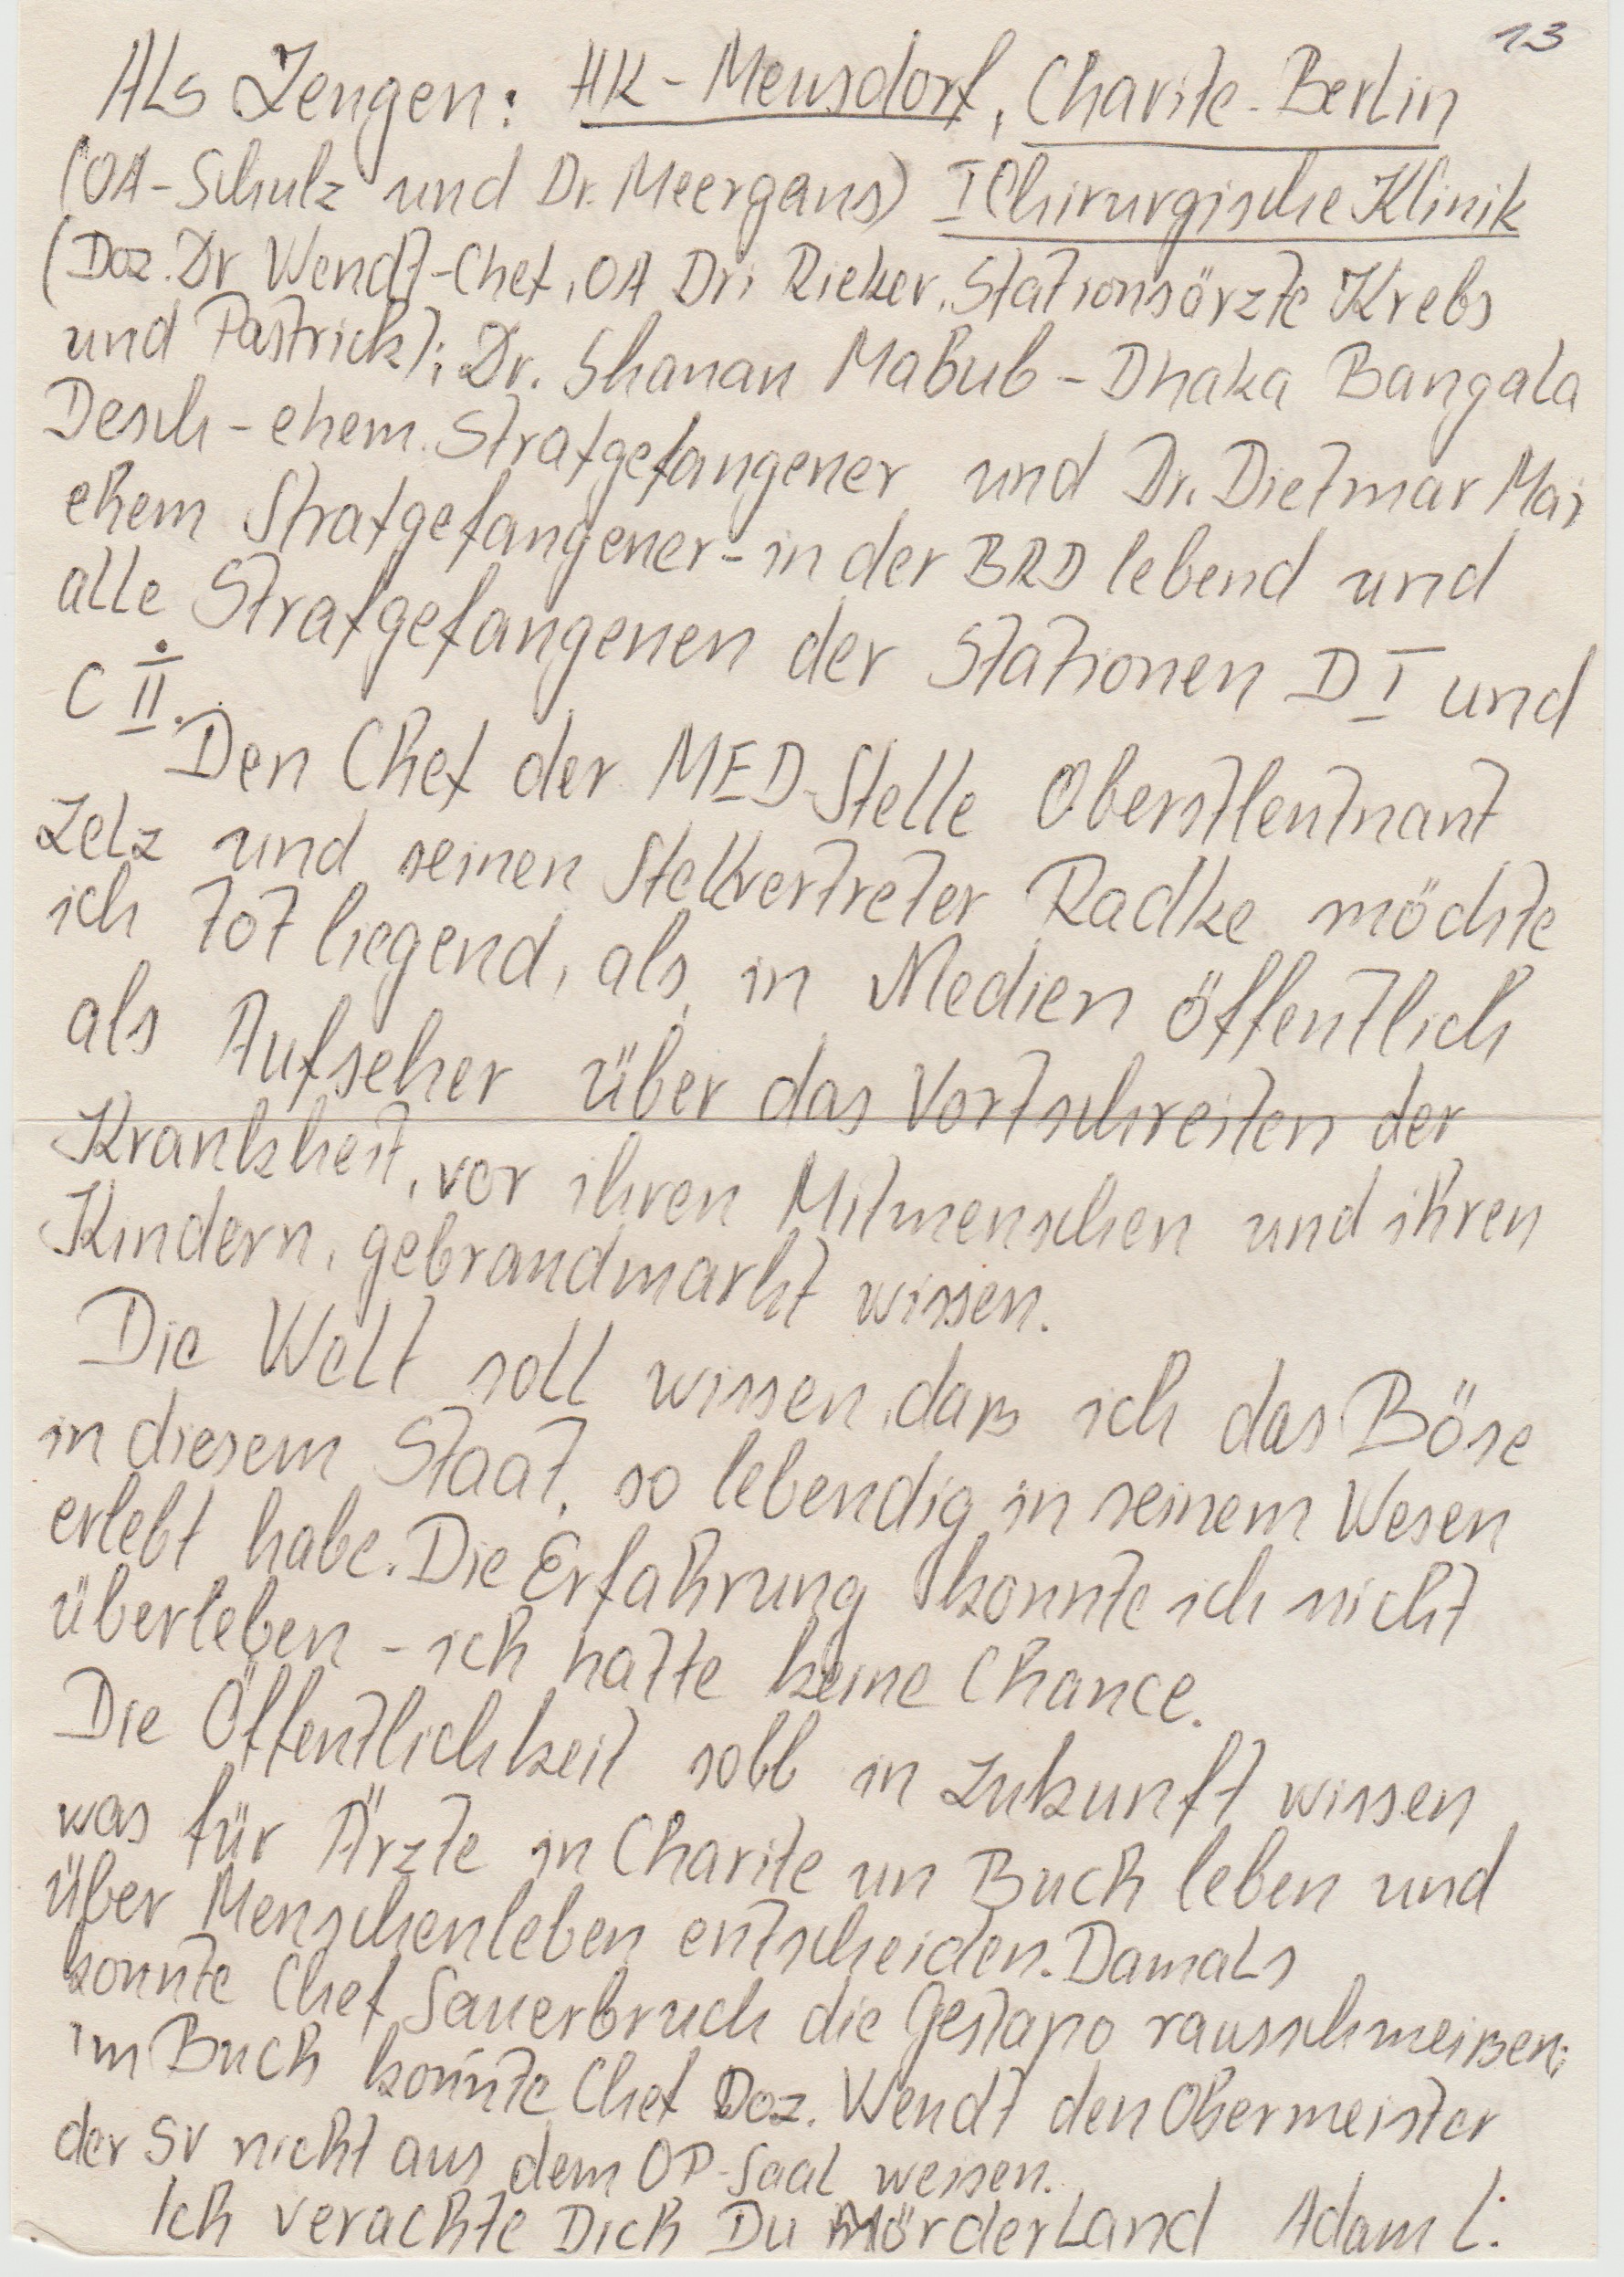 13
Als Zeugen: HK-Meusdorf, Charite-Berlin
(OA-Schulz und Dr. Meergans) I Chirurgische Klinik
(Doz. Dr Wendt-Chef, OA Dr. Rieker, Stationsärzte Krebs
und Pastrick); Dr. Shanan Mabub - Dhaka Bangala
Desch - ehem. Strafgefangener und Dr. Dietmar Mai
ehem Strafgefangener - in der BRD lebend und
alle Strafgefangenen der Stationen D I und
C II.
Den Chef der MED-Stelle Oberstleutnant
Zelz und seinen Stellvertreter Radke möchte
ich tot liegend, als, in Medien öffentlich
als Aufseher über das Vortschreiten der
Krankheit, vor ihren Mitmenschen und ihren
Kindern, gebrandmarkt wissen.
Die Welt soll wissen, daß ich das Böse
in diesem Staat, so lebendig in seinem Wesen
erlebt habe. Die Erfahrung konnte ich nicht
überleben - ich hatte keine Chance.
Die Öffentlichkeit soll in Zukunft wissen
was für Ärzte in Charite un Buch leben und
über Menschenleben entscheiden. Damals
konnte Chef Sauerbruch die Gestapo rausschmeißen;
im Buch konnte Chef Doz. Wendt den Obermeister
der SV nicht aus dem OP-Saal weisen.
Ich verachte Dich Du Mörderland Adam L.